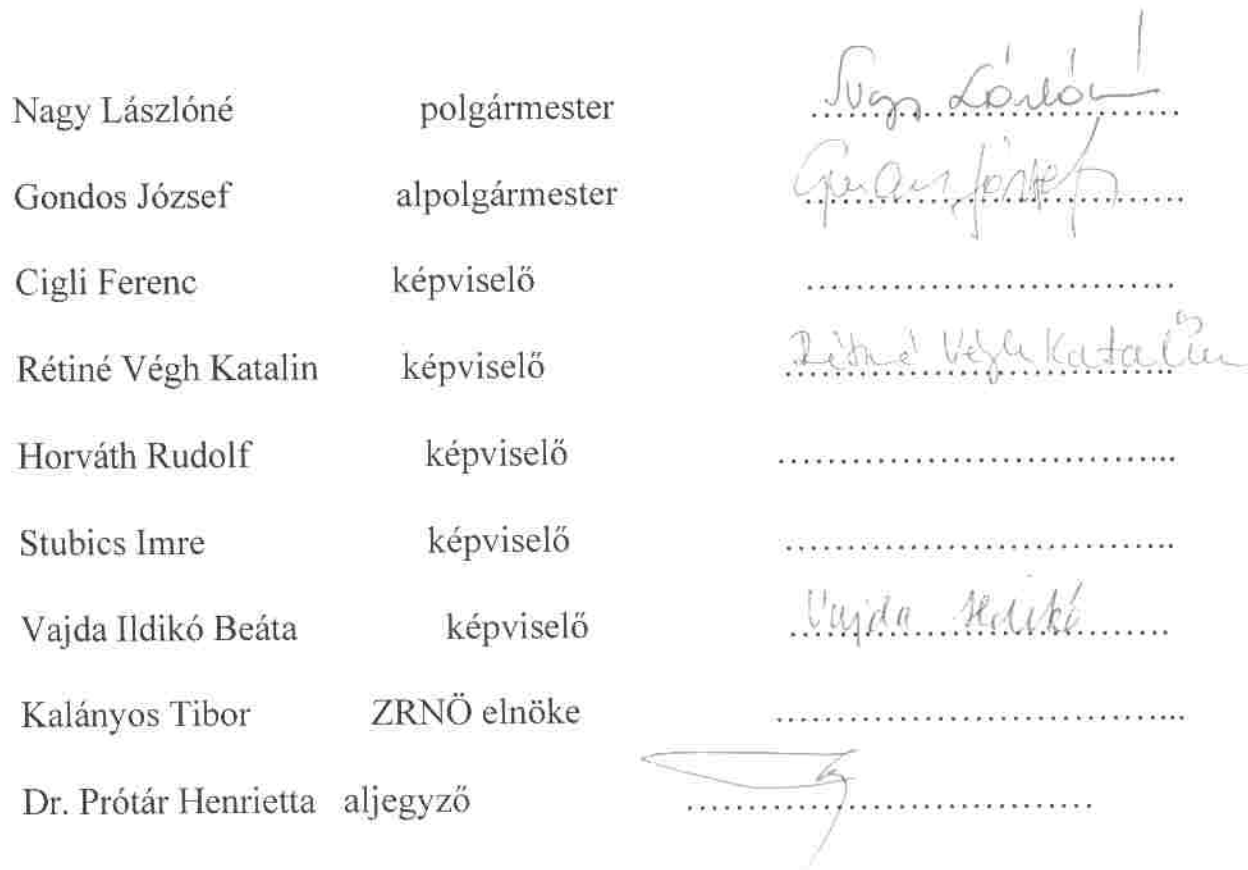 Nagy Lászlóné polgármester Nagy Lászlóné
Gondos József alpolgármester József
Cigli Ferenc képviselő ..............................
Rétiné Végh Katalin képviselő Rétiné Végh Katalin
Horváth Rudolf képviselő ..............................
Stubics Imre képviselő ..............................
Vajda Ildikó Beáta képviselő Vajda Ildikó
Kalányos Tibor ZRNÖ elnöke ..............................
Dr. Prótár Henrietta aljegyző ..............................